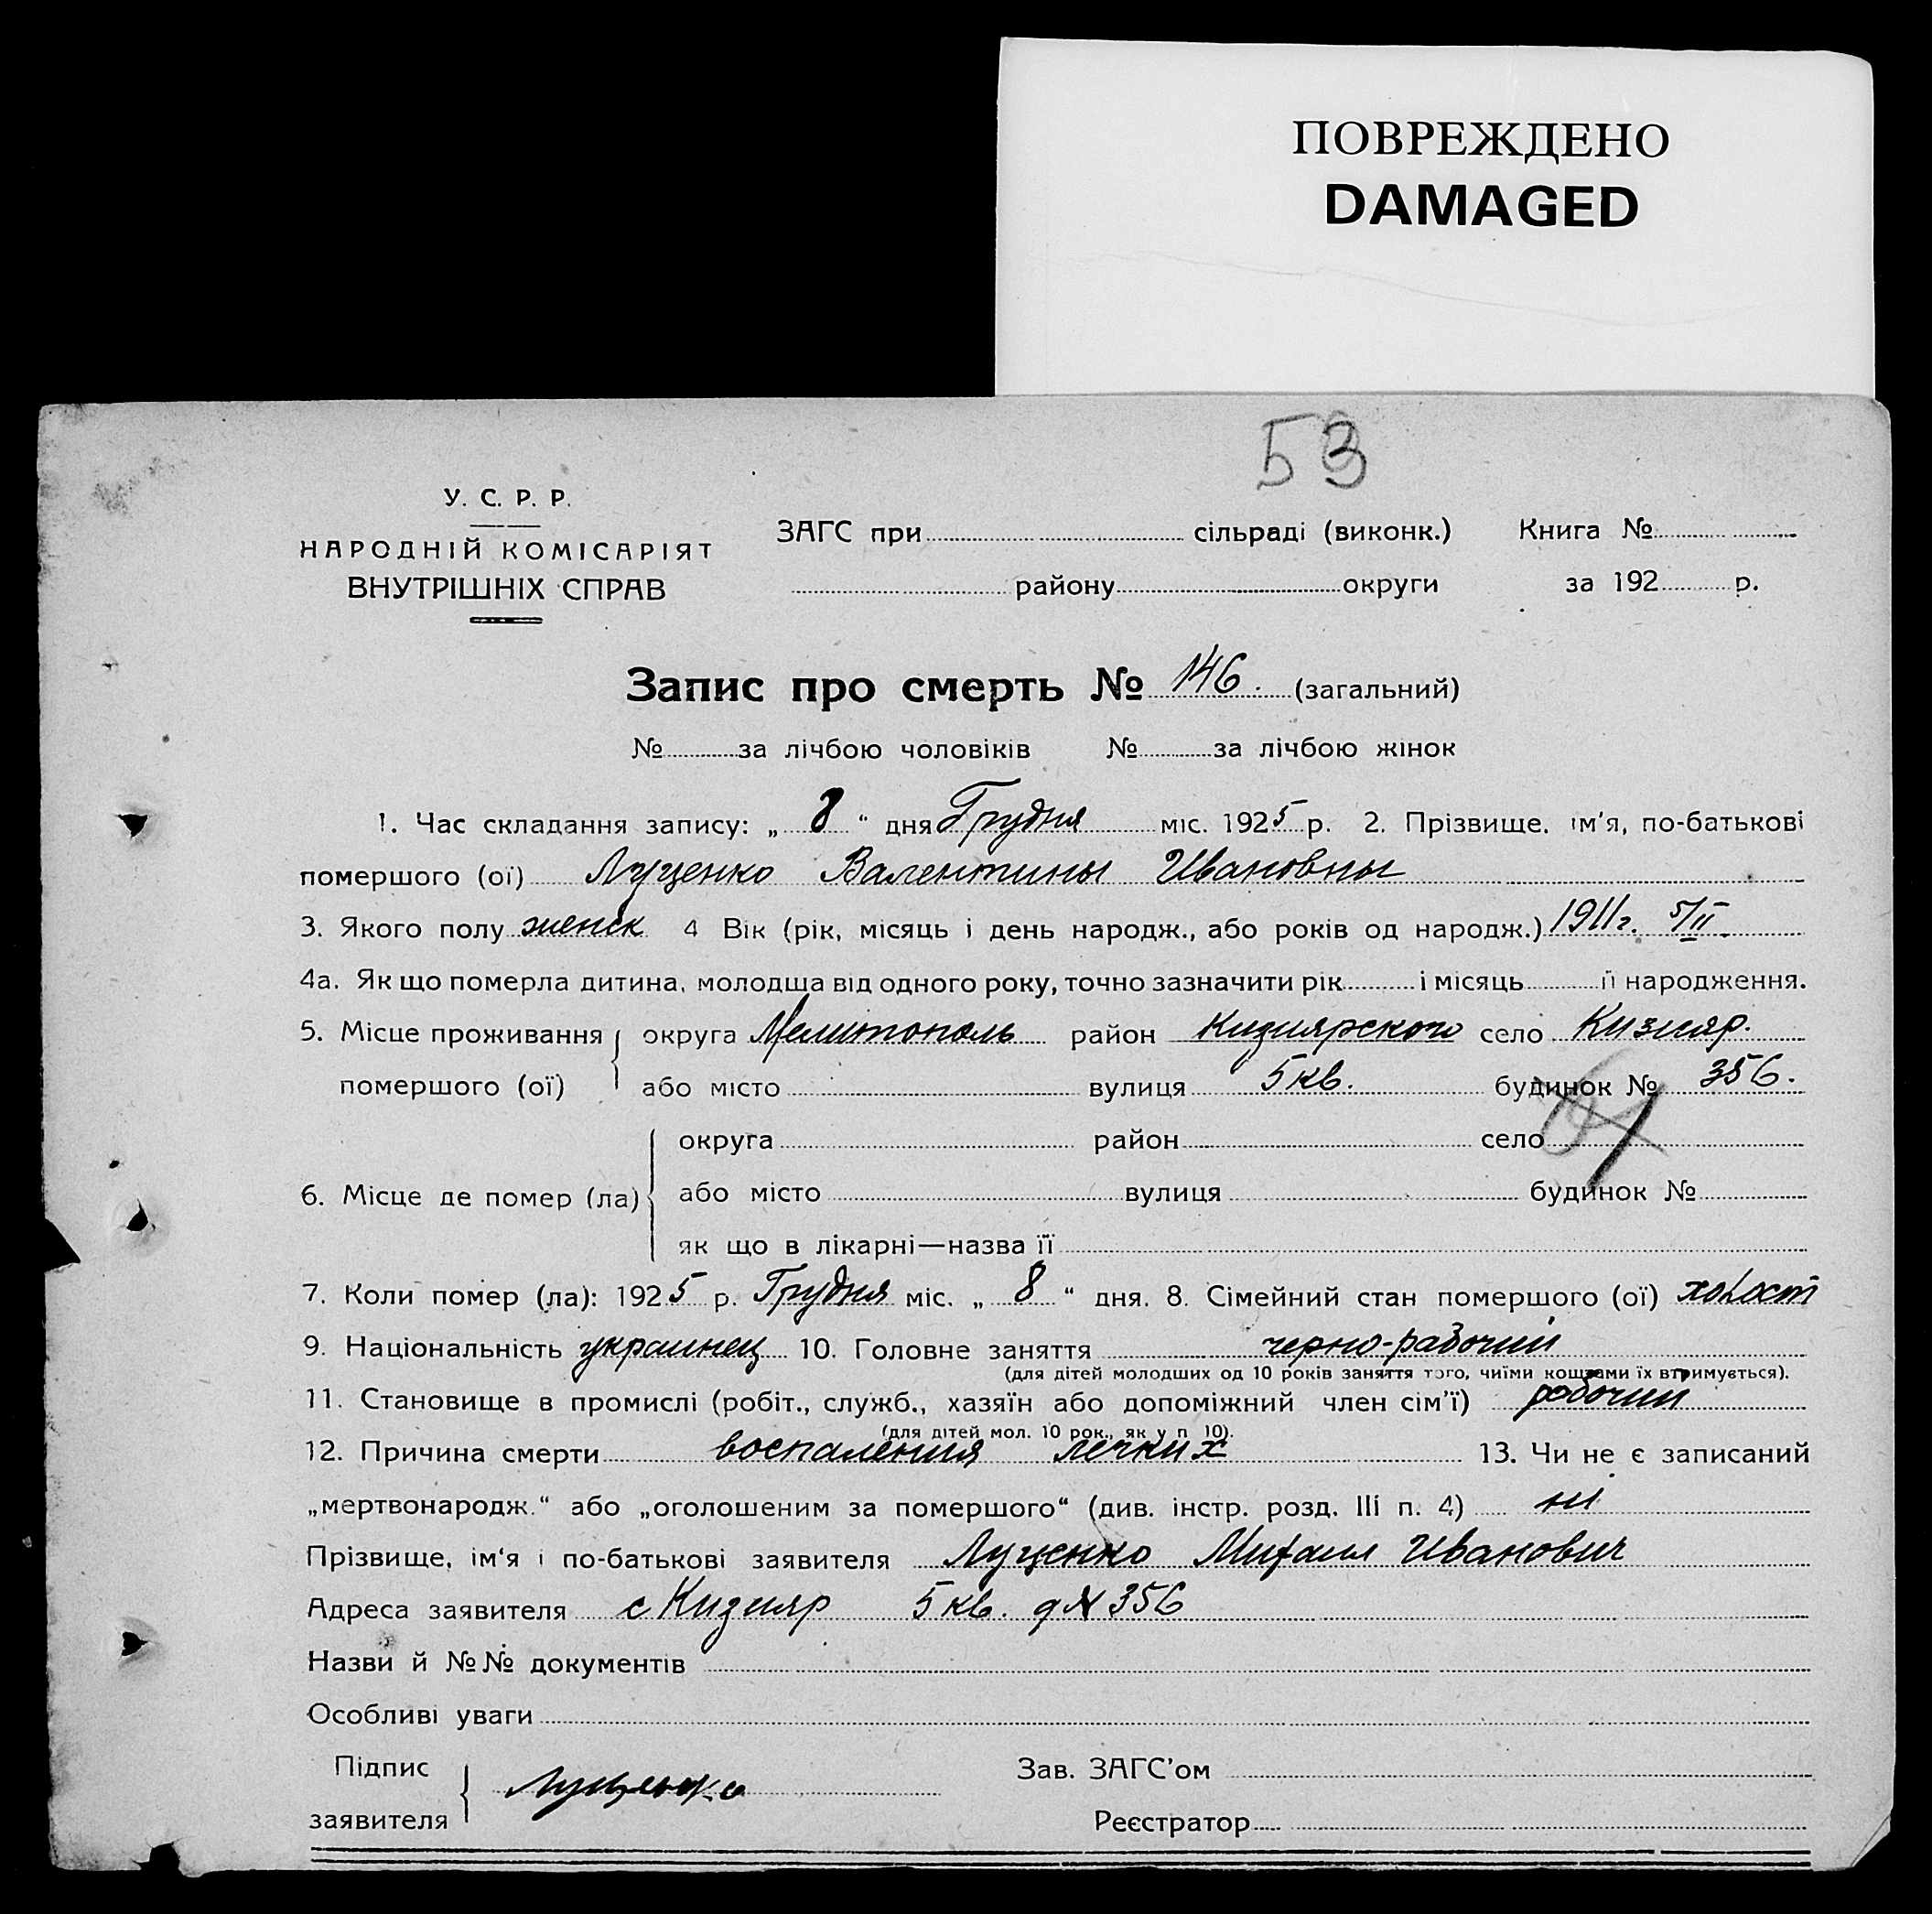 ПОВРЕЖДЕНО
DAMAGED
53
У. С. Р. Р.
НАРОДНІЙ КОМІСАРІЯТ
ВНУТРІШНІХ СПРАВ
ЗАГС при сільраді (виконк.) Книга №
району округи за 192 р.
Запис про смерть № 146. (загальний)
№ за лічбою чоловіків № за лічбою жінок
1. Час складання запису: „ 8 “ дня Грудня міс. 1925 р. 2. Прізвище, ім'я, по-батькові
помершого (ої) Луценко Валентины Ивановны
3. Якого полу женск 4 Вік (рік, місяць і день народж., або років од народж.) 1911г. 5/II.
4а. Як що померла дитина, молодша від одного року, точно зазначити рік і місяць її народження.
5. Місце проживання округа Мелитополь район Кизиярского село Кизияр.
помершого (ої) або місто вулиця 5 кв. будинок № 356.
округа район село
6. Місце де помер (ла) або місто вулиця будинок №
як що в лікарні—назва її
7. Коли помер (ла): 1925 р. Грудня міс. „ 8 “ дня. 8. Сімейний стан помершого (ої) холост
9. Національність украинец 10. Головне заняття черно-рабочий
(для дітей молодших од 10 років заняття того, чиїми коштами їх втримується).
11. Становище в промислі (робіт., служб., хазяїн або допоміжний член сім'ї) рабочий
(для дітей мол. 10 рок., як у п 10).
12. Причина смерти воспаления легких 13. Чи не є записаний
„мертвонародж.“ або „оголошеним за помершого“ (див. інстр. розд. III п. 4) ні
Прізвище, ім‘я і по-батькові заявителя Луценко Михаил Иванович
Адреса заявителя с Кизияр 5 кв. д № 356
Назви й №№ документів
Особливі уваги
Підпис
заявителя Луценко
Зав. ЗАГС'ом
Реєстратор